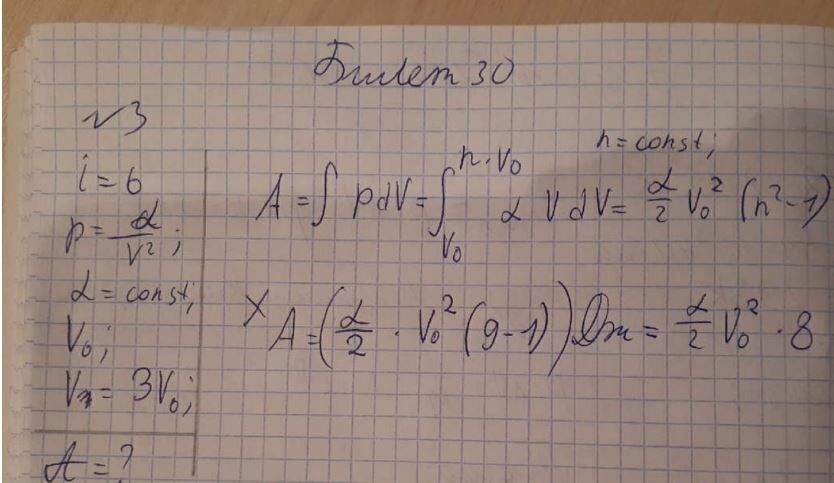 Билет 30
√3
i = 6
p = α/V²;
α = const;
V₀;
Vₙ = 3V₀;
A = ?
n = const;
A = ∫ pdV = ∫_{V₀}^{n·V₀} α V dV = α/2 V₀² (n²-1)
A = (α/2 · V₀² (9-1)) Дж = α/2 V₀² · 8